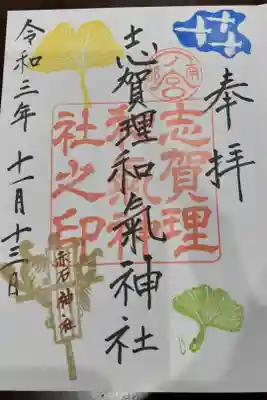 奉拝
志賀理和氣神社
志賀理
和氣神
社之印
令和三年 十一月 十三日
赤石神社